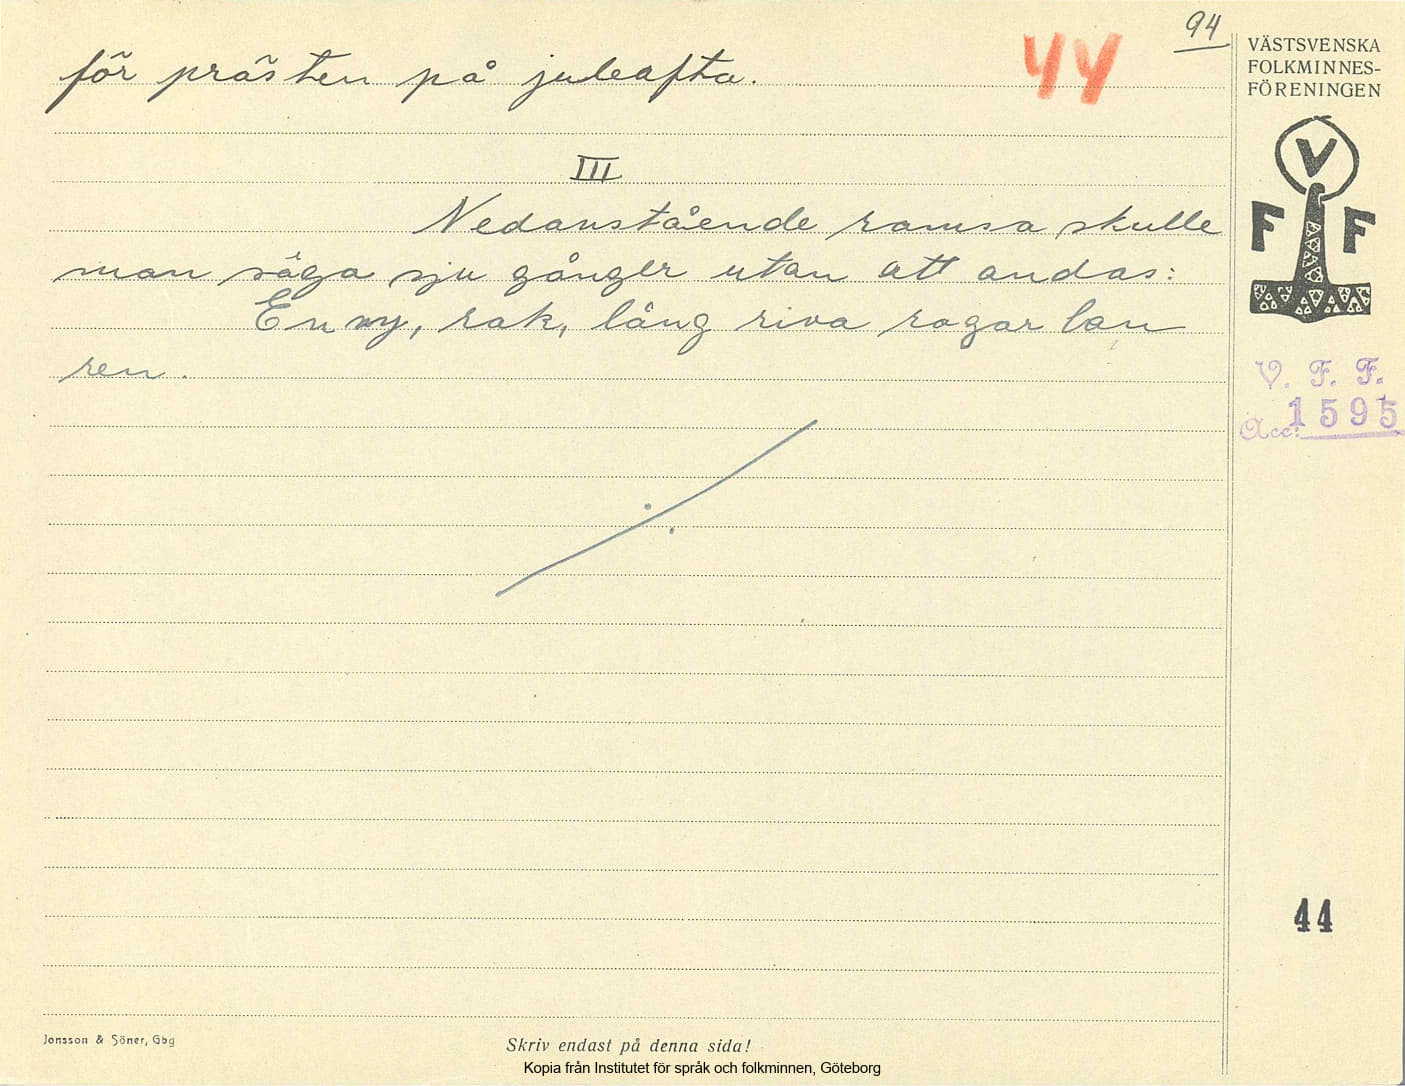 94
44
VÄSTSVENSKA
FOLKMINNES-
FÖRENINGEN
för prästen på juleafta.
III
Nedanstående ramsa skulle
man säga sju gånger utan att andas:
En ny, rak, lång riva ragar lan
ren.
V
F F
V. F. F.
Acc: 1595
44
Jonsson & Söner, Gbg
Skriv endast på denna sida!
Kopia från Institutet för språk och folkminnen, Göteborg